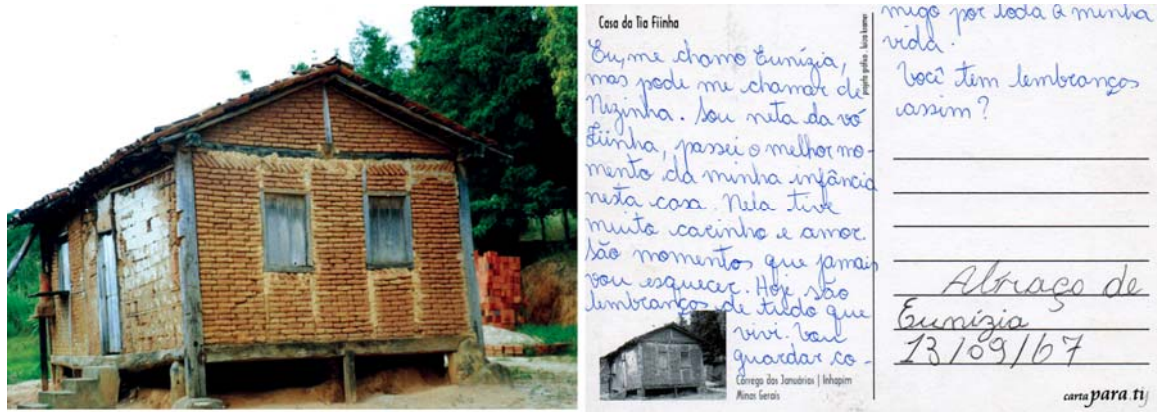 Casa da Tia Fiinha
projeto gráfico . luiza kramer
Eu, me chamo Eunízia,
mas pode me chamar de
Nizinha. Sou neta da vó
Fiinha, passei o melhor mo-
mento da minha infância
nesta casa. Nela tive
muito carinho e amor.
São momentos que jamais
vou esquecer. Hoje são
lembranças de tudo que
vivi. Vou
guardar co-
Córrego dos Januários | Inhapim
Minas Gerais
migo por toda a minha
vida.
Você tem lembranças
assim?
Abraço de
Eunízia
13/09/67
carta para ti